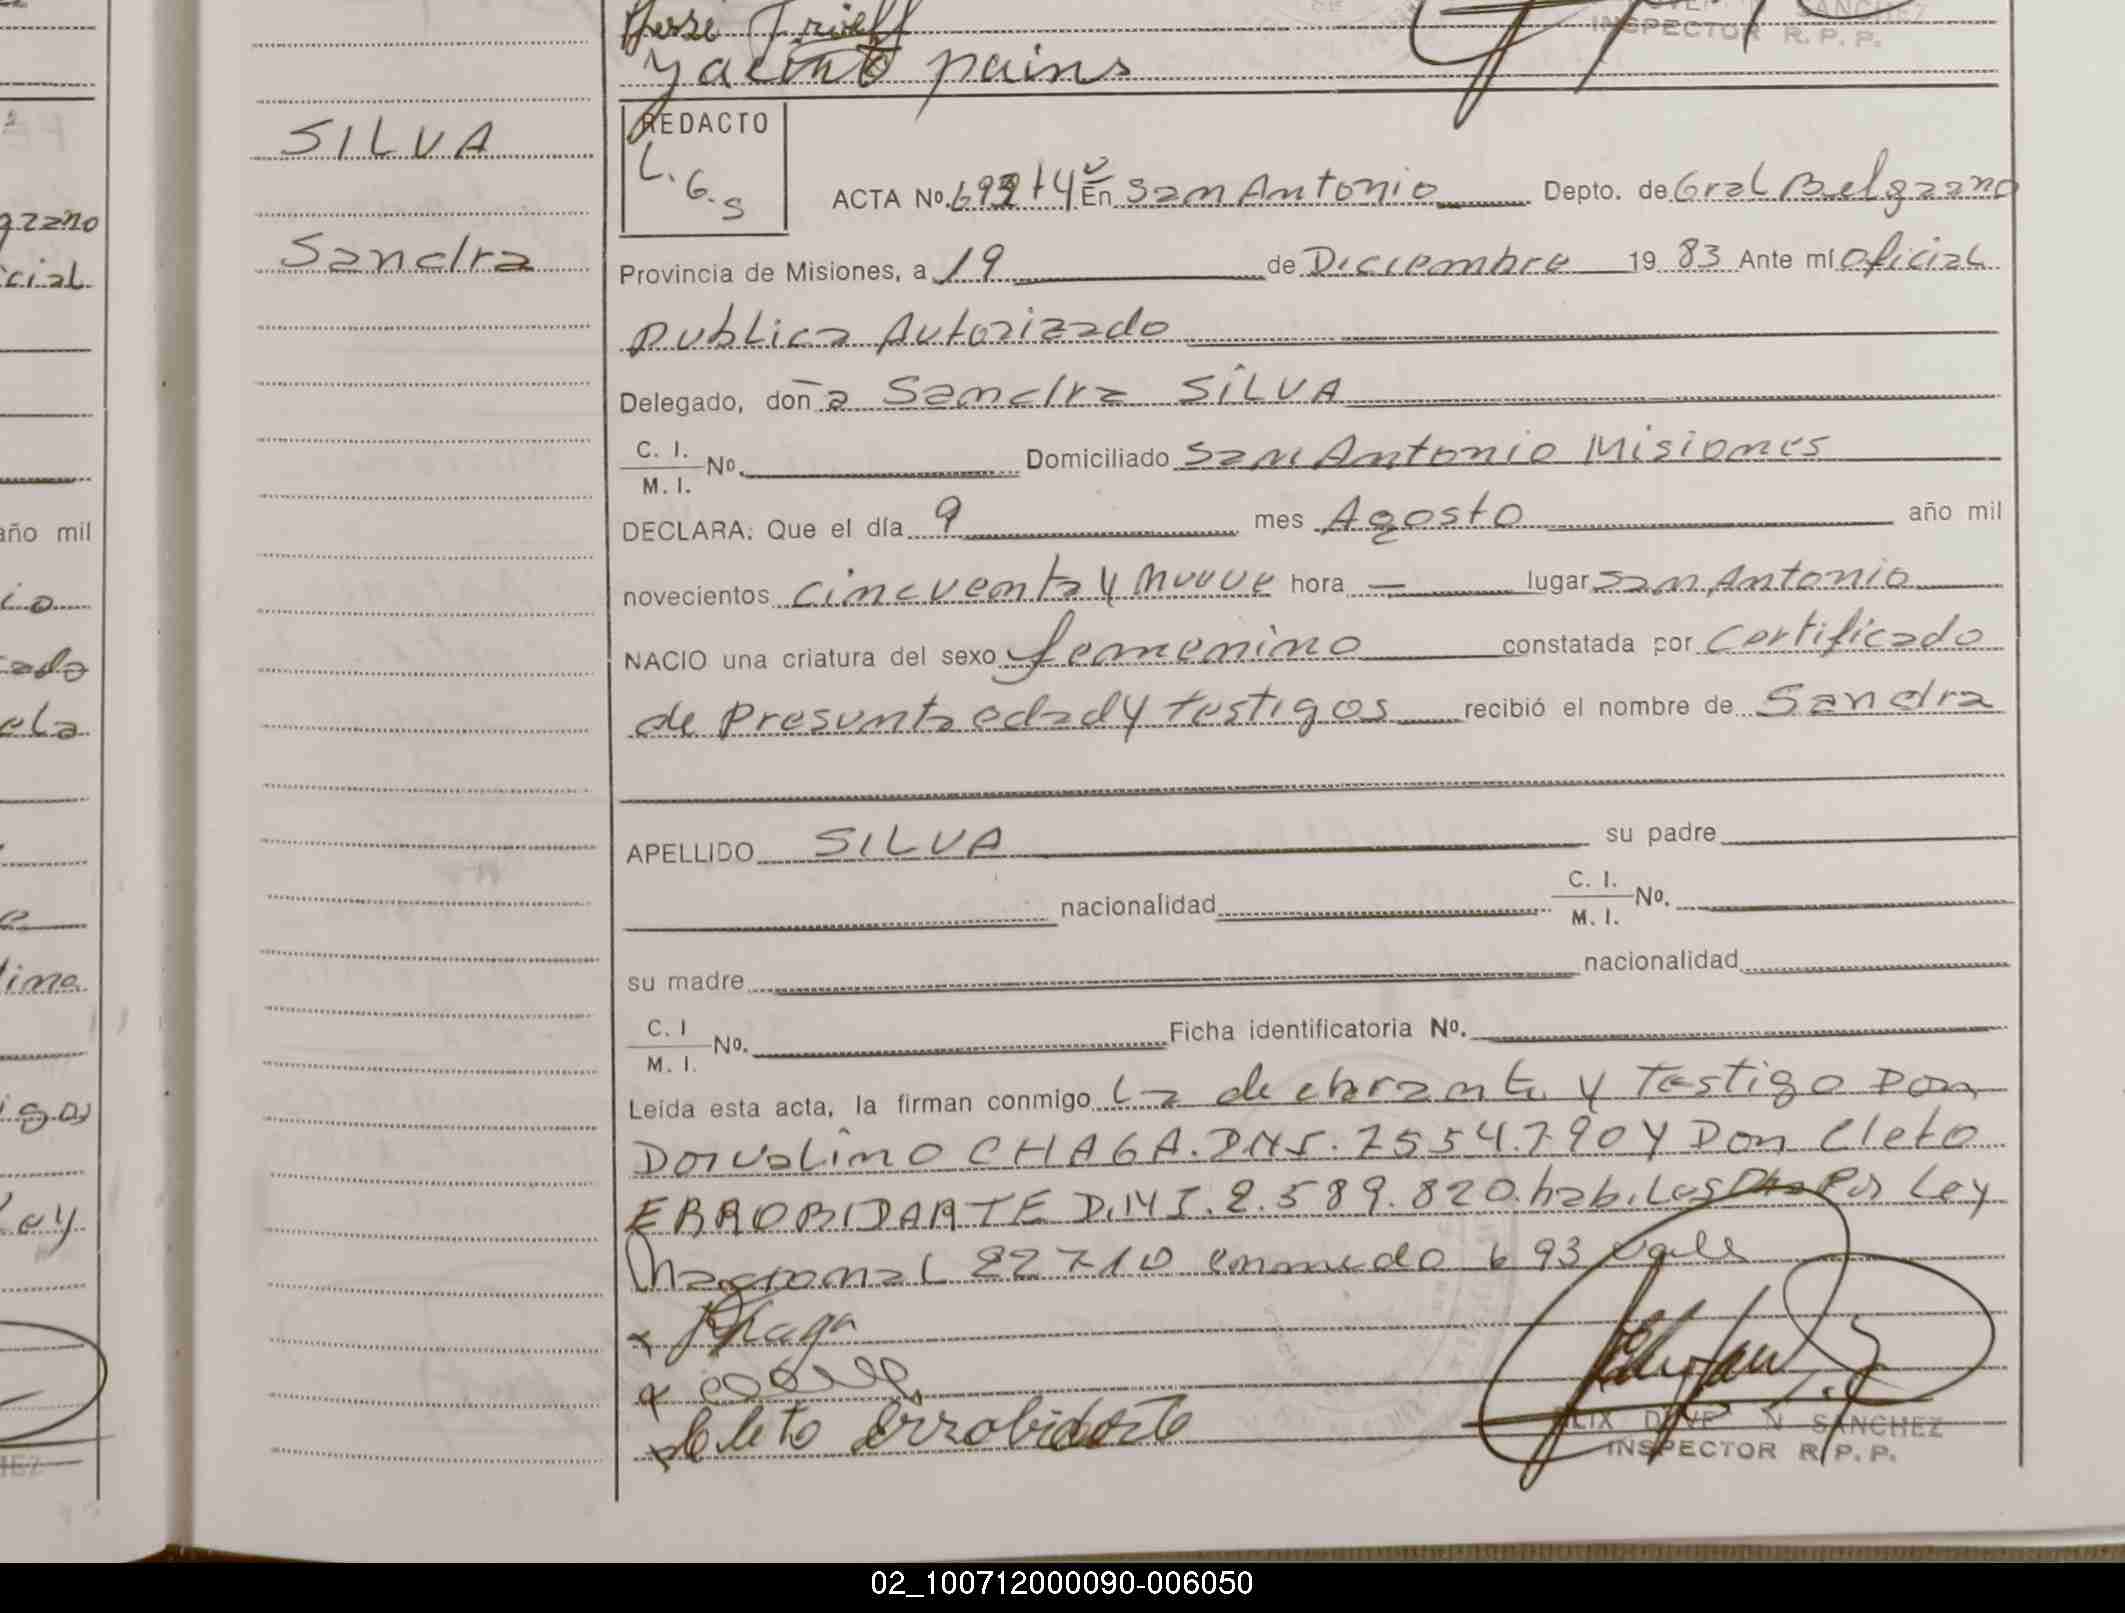 yacinto pains
INSPECTOR R. P. P.
SILVA
Sandra
REDACTO
L. G. S
ACTA No. En San Antonio Depto. de Gral Belgrano
Provincia de Misiones, a 19 de Diciembre 19 83 Ante mí Oficial
publica Autorizado
Delegado, doña Sandra SILVA
C. I.
M. I. No. Domiciliado San Antonio Misiones
DECLARA: Que el día 9 mes Agosto año mil
novecientos cincuenta y nueve hora — lugar San Antonio
NACIO una criatura del sexo femenino constatada por Certificado
de Presunta edad y testigos recibió el nombre de Sandra
APELLIDO SILVA su padre
nacionalidad C. I.
M. I. No.
su madre nacionalidad
C. I
M. I. No. Ficha identificatoria No.
Leída esta acta, la firman conmigo La declarante y Testigo Don
Dorvalino CHAGA. DNI. 7554.790 y Don Cleto
ERROBIDARTE D.N.I. 2.589.820 habiles Por Ley
Nacional 22710 enmedo 693 vale
x Chaga
x
x Cleto Errobidarte
SANCHEZ
INSPECTOR R. P. P.
grano
cial
año mil
io
ado
ela
lina
igos
Ley
02_100712000090-006050